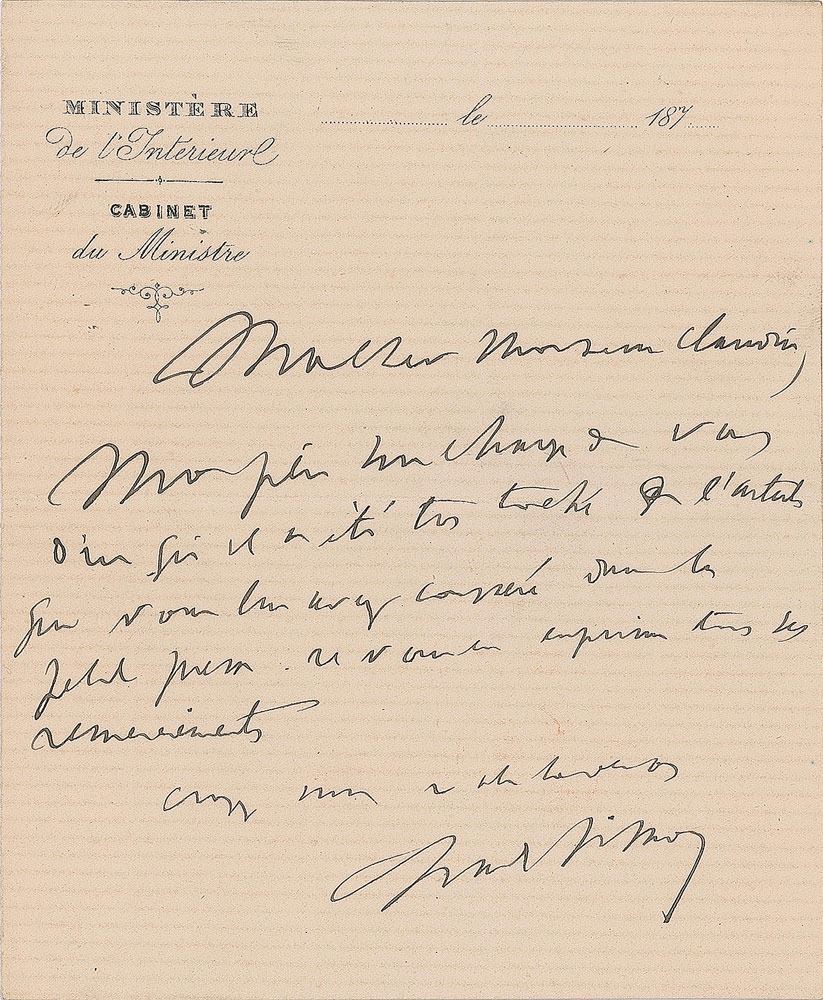 MINISTÈRE
de l'Intérieur
CABINET
du Ministre
le 187
Mon cher Monsieur Claudin,
Mon père me charge de vous
dire qu'il a été très touché de l'article
que vous lui avez consacré dans le
petit presse. Je vous en exprime tous ses
remerciements
croyez moi